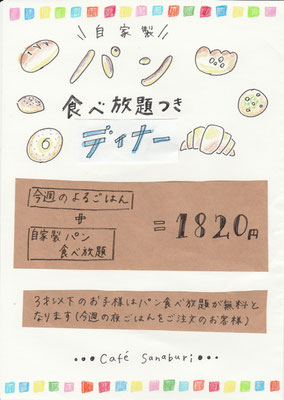 自家製
パン
食べ放題つき
ディナー
今週のよるごはん
+
自家製パン
食べ放題
=1820円
3才以下のお子様はパン食べ放題が無料と
なります(今週の夜ごはんをご注文のお客様)
•••Café Sanaburi•••